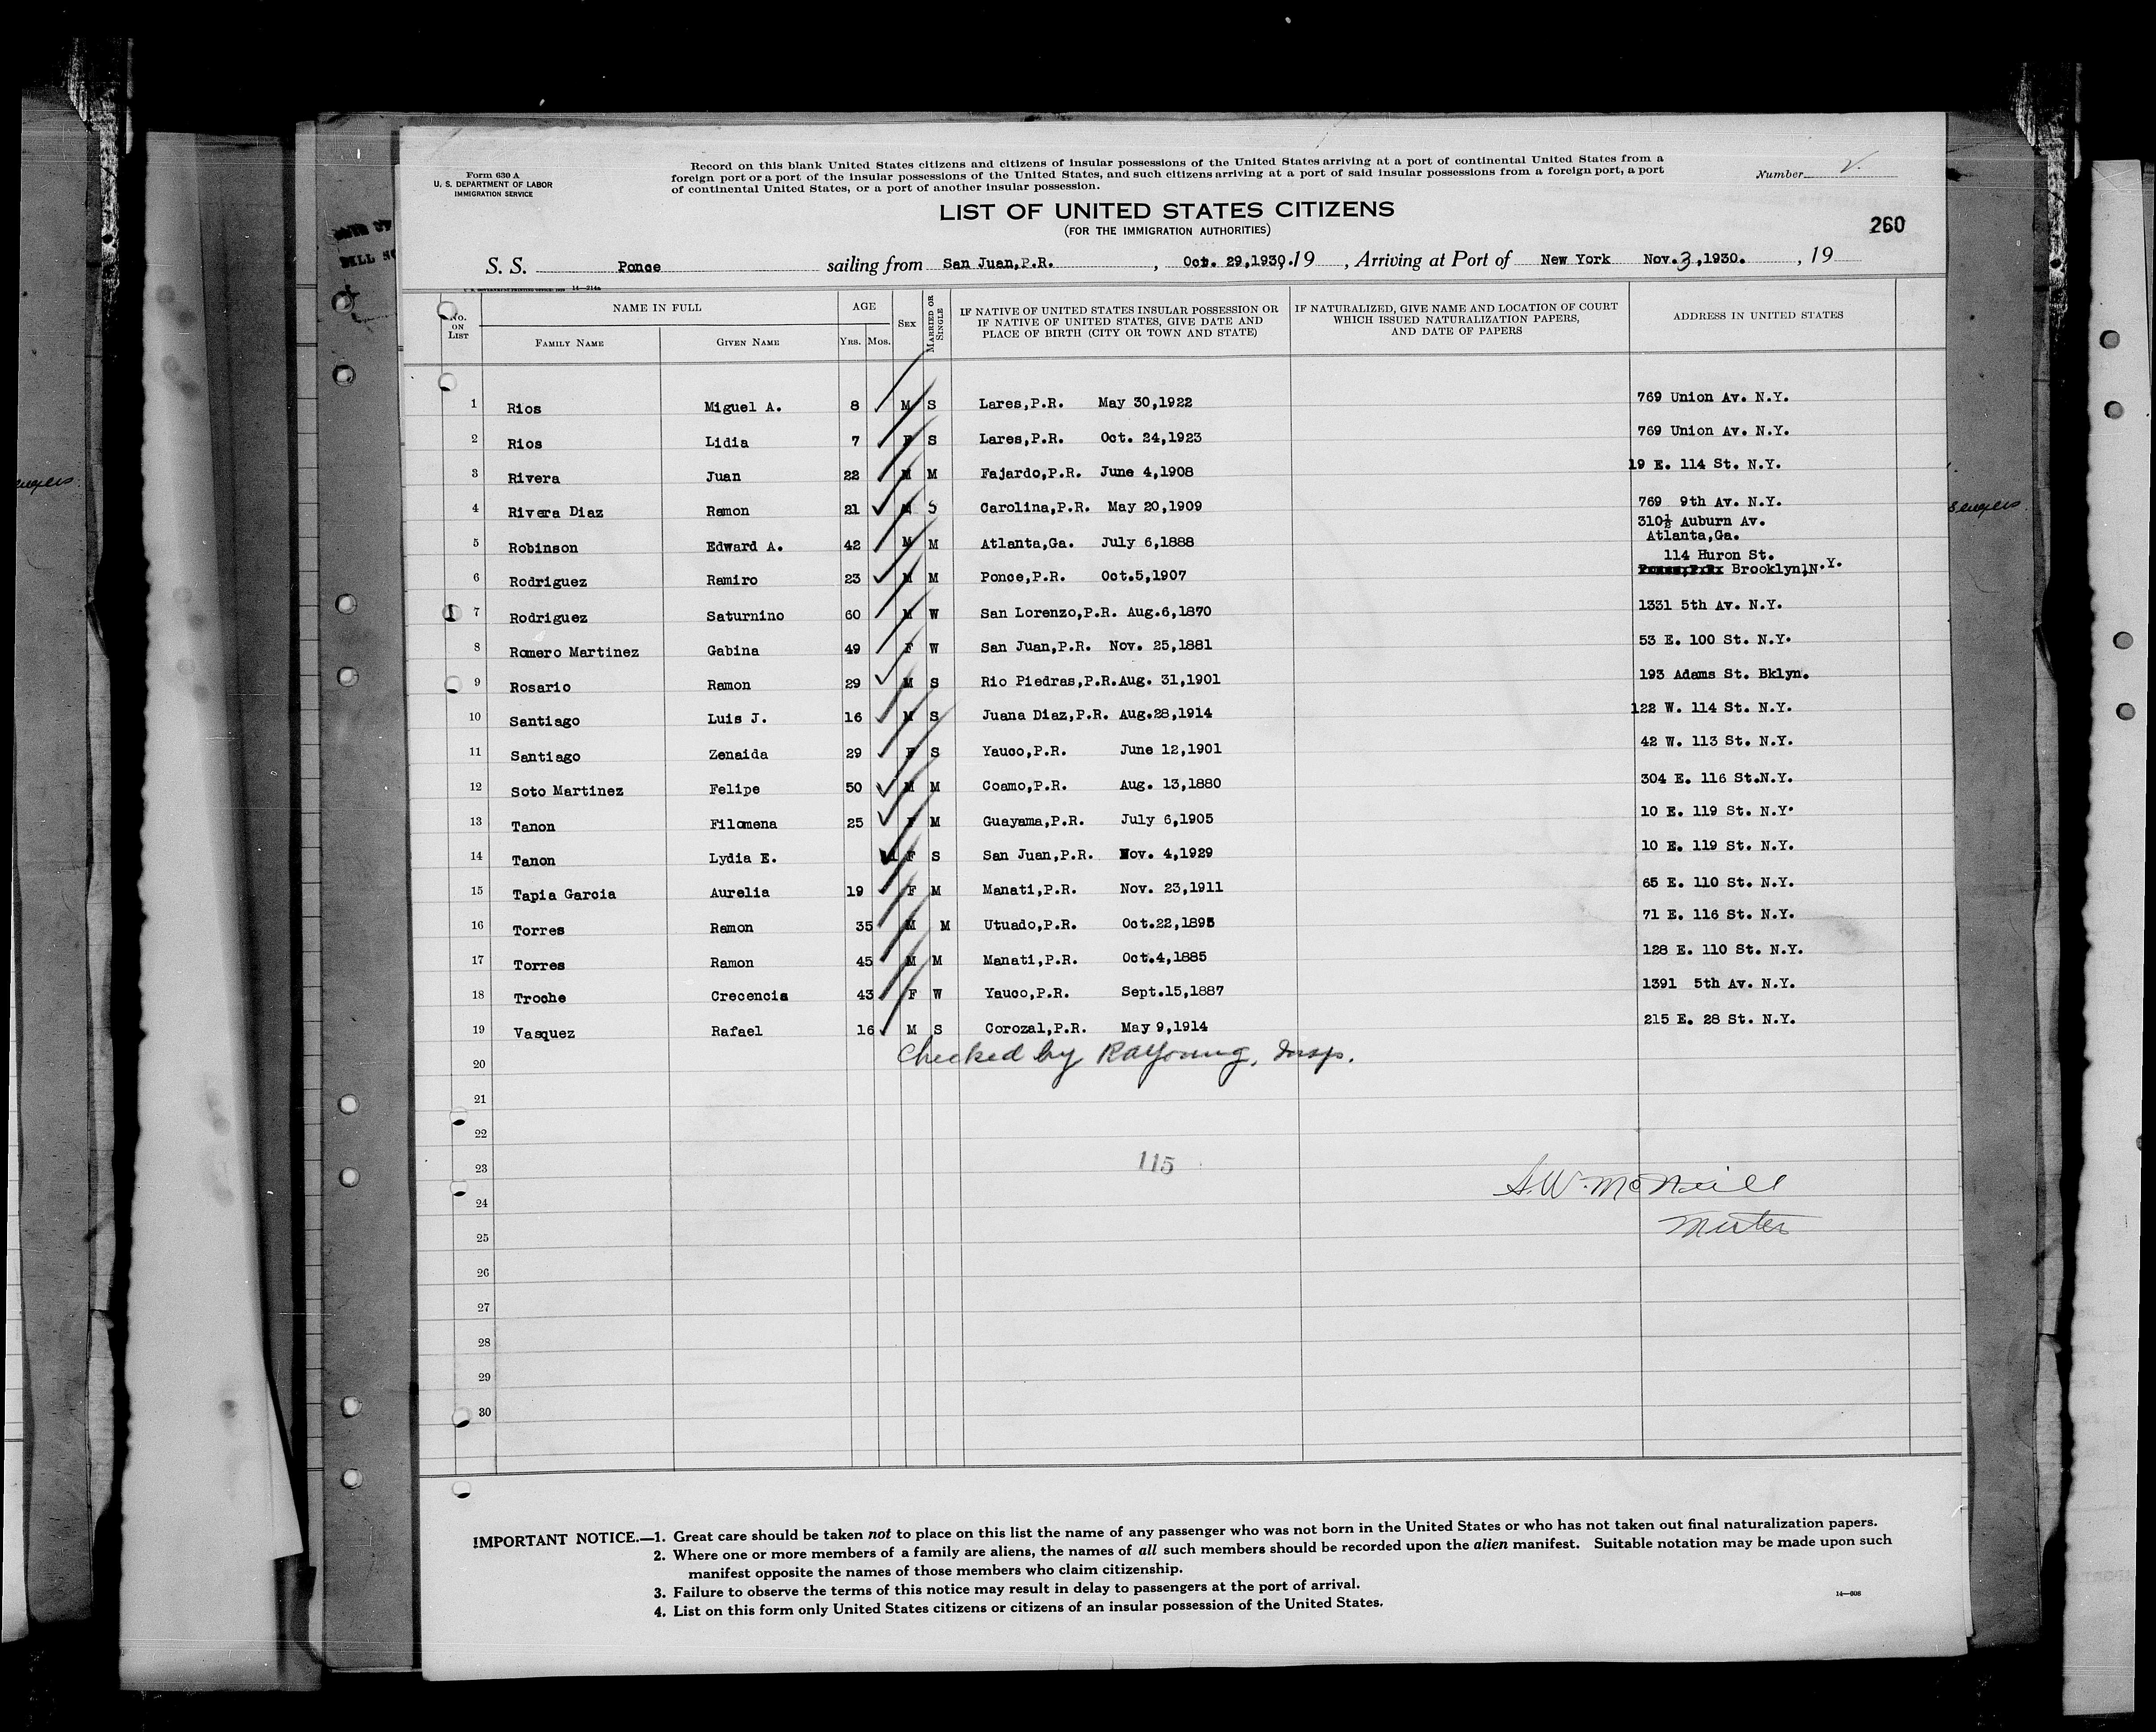 Form 630 A
U. S. DEPARTMENT OF LABOR
IMMIGRATION SERVICE
Record on this blank United States citizens and citizens of insular possessions of the United States arriving at a port of continental United States from a
foreign port or a port of the insular possessions of the United States, and such citizens arriving at a port of said insular possessions from a foreign port, a port
of continental United States, or a port of another insular possession.
Number V.
LIST OF UNITED STATES CITIZENS
(FOR THE IMMIGRATION AUTHORITIES)
260
S. S. Ponce sailing from San Juan,P.R. , Oct. 29,1930.19 , Arriving at Port of New York Nov.3,1930. , 19
14—214a
No. ON LIST NAME IN FULL AGE SEX MARRIED OR SINGLE IF NATIVE OF UNITED STATES INSULAR POSSESSION OR IF NATIVE OF UNITED STATES, GIVE DATE AND PLACE OF BIRTH (CITY OR TOWN AND STATE) IF NATURALIZED, GIVE NAME AND LOCATION OF COURT WHICH ISSUED NATURALIZATION PAPERS, AND DATE OF PAPERS ADDRESS IN UNITED STATES
FAMILY NAME GIVEN NAME YRS. MOS.
1 Rios Miguel A. 8 M S Lares,P.R. May 30,1922 769 Union Av. N.Y.
2 Rios Lidia 7 F S Lares,P.R. Oct. 24,1923 769 Union Av. N.Y.
3 Rivera Juan 22 M M Fajardo,P.R. June 4,1908 19 E. 114 St. N.Y.
4 Rivera Diaz Ramon 21 M S Carolina,P.R. May 20,1909 769 9th Av. N.Y.
310½ Auburn Av.
5 Robinson Edward A. 42 M M Atlanta,Ga. July 6,1888 Atlanta,Ga.
114 Huron St.
6 Rodriguez Ramiro 23 M M Ponce,P.R. Oct.5,1907 Brooklyn,N.Y.
7 Rodriguez Saturnino 60 M W San Lorenzo,P.R. Aug.6,1870 1331 5th Av. N.Y.
8 Romero Martinez Gabina 49 F W San Juan,P.R. Nov. 25,1881 53 E. 100 St. N.Y.
9 Rosario Ramon 29 M S Rio Piedras,P.R.Aug. 31,1901 193 Adams St. Bklyn.
10 Santiago Luis J. 16 M S Juana Diaz,P.R. Aug.28,1914 122 W. 114 St. N.Y.
11 Santiago Zenaida 29 F S Yauco,P.R. June 12,1901 42 W. 113 St. N.Y.
12 Soto Martinez Felipe 50 M M Coamo,P.R. Aug. 13,1880 304 E. 116 St.N.Y.
13 Tanon Filomena 25 F M Guayama,P.R. July 6,1905 10 E. 119 St. N.Y.
14 Tanon Lydia E. F S San Juan,P.R. Nov. 4,1929 10 E. 119 St. N.Y.
15 Tapia Garcia Aurelia 19 F M Manati,P.R. Nov. 23,1911 65 E. 110 St. N.Y.
16 Torres Ramon 35 M M Utuado,P.R. Oct.22,1895 71 E. 116 St. N.Y.
17 Torres Ramon 45 M M Manati,P.R. Oct.4,1885 128 E. 110 St. N.Y.
18 Troche Crecencia 43 F W Yauco,P.R. Sept.15,1887 1391 5th Av. N.Y.
19 Vasquez Rafael 16 M S Corozal,P.R. May 9,1914 215 E. 28 St. N.Y.
Checked by RAYoung, Insp.
20
21
22
23
115
24
S.W. McNeill
Master
25
26
27
28
29
30
IMPORTANT NOTICE.—1. Great care should be taken not to place on this list the name of any passenger who was not born in the United States or who has not taken out final naturalization papers.
2. Where one or more members of a family are aliens, the names of all such members should be recorded upon the alien manifest. Suitable notation may be made upon such
manifest opposite the names of those members who claim citizenship.
3. Failure to observe the terms of this notice may result in delay to passengers at the port of arrival.
4. List on this form only United States citizens or citizens of an insular possession of the United States.
14—608